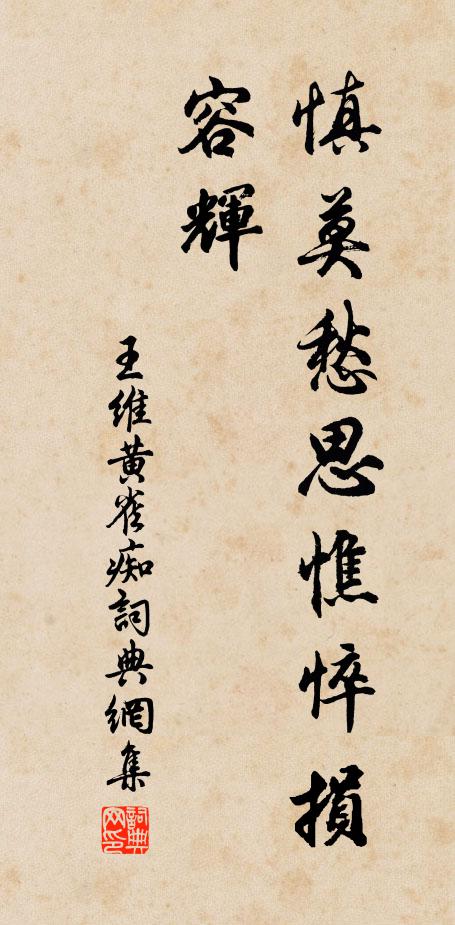 慎莫愁思憔悴損
容輝
王維黃雀痴詞典網集
詞典
网印